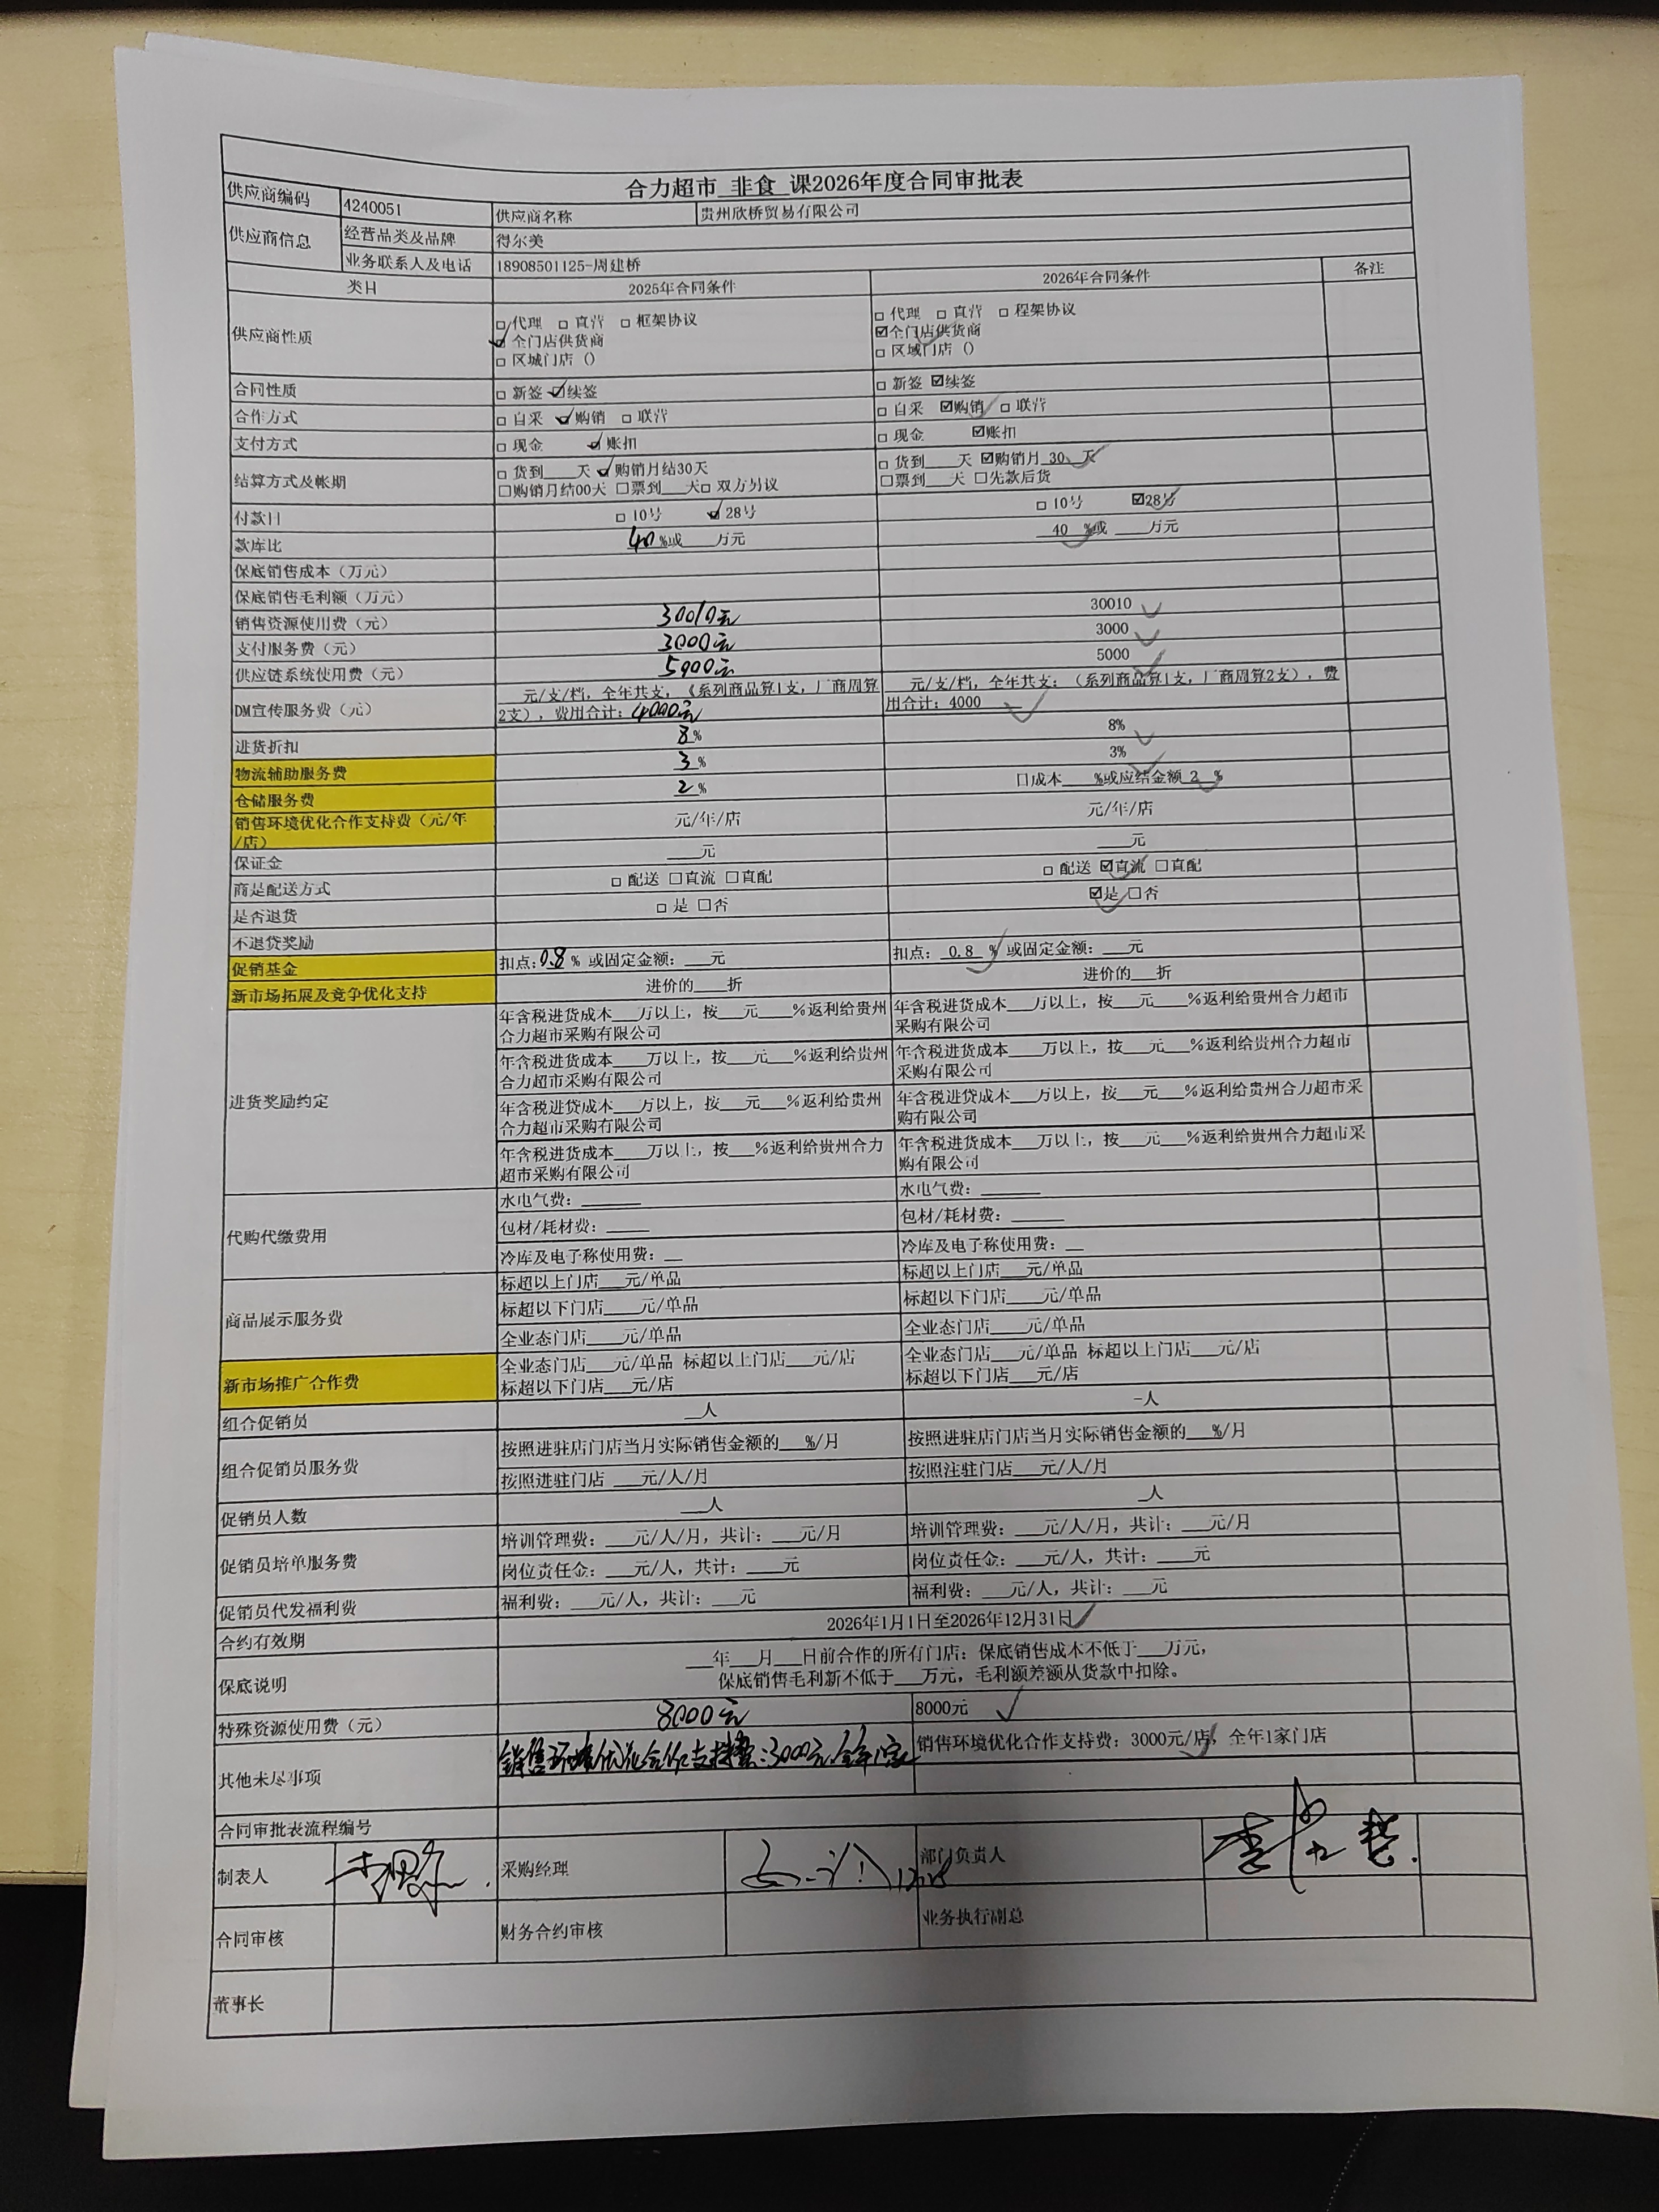 合力超市 非食 课2026年度合同审批表
供应商编码 4240051 供应商名称 贵州欣桥贸易有限公司
供应商信息 经营品类及品牌 得尔美
业务联系人及电话 18908501125-周建桥
类目 2025年合同条件 2026年合同条件 备注
供应商性质
□ 代理 □ 直营 □ 框架协议
☑ 全门店供货商
□ 区城门店 ()
□ 代理 □ 直营 □ 程架协议
☑全门店供货商
□ 区域门店 ()
合同性质 □ 新签 ☑续签 □ 新签 ☑续签
合作方式 □ 自采 ☑购销 □ 联营 □ 自采 ☑购销 □ 联营
支付方式 □ 现金 ☑账扣 □ 现金 ☑账扣
结算方式及帐期
□ 货到___天 ☑购销月结30天
□购销月结00天 □票到___天□ 双方另议
□ 货到___天 ☑购销月_30_天
□票到___天 □先款后货
付款日 □ 10号 ☑28号 □ 10号 ☑28号
款库比 40%或___万元 _40_%或___万元
保底销售成本（万元）
保底销售毛利额（万元）
销售资源使用费（元） 30010元 30010
支付服务费（元） 3000元 3000
供应链系统使用费（元） 5000元 5000
DM宣传服务费（元）
___元/支/档，全年共支，（系列商品算1支，厂商周算
2支），费用合计：4000元
___元/支/档，全年共支；（系列商品算1支，厂商周算2支），费
用合计：4000
进货折扣 8% 8%
物流辅助服务费 3% 3%
仓储服务费 2% 口成本___%或应结金额_2_%
销售环境优化合作支持费（元/年
/店） 元/年/店 元/年/店
保证金 ___元 ___元
商是配送方式 □ 配送 □直流 □直配 □ 配送 ☑直流 □直配
是否退货 □ 是 □否 ☑是 □否
不退贷奖励
促销基金 扣点：0.8% 或固定金额：___元 扣点：_0.8_% 或固定金额：___元
新市场拓展及竞争优化支持 进价的___折 进价的___折
进货奖励约定
年含税进货成本___万以上，按___元___%返利给贵州
合力超市采购有限公司
年含税进货成本___万以上，按___元___%返利给贵州合力超市
采购有限公司
年含税进货成本___万以上，按___元___%返利给贵州
合力超市采购有限公司
年含税进货成本___万以上，按___元___%返利给贵州合力超市
采购有限公司
年含税进贷成本___万以上，按___元___%返利给贵州
合力超市采购有限公司
年含税进贷成本___万以上，按___元___%返利给贵州合力超市采
购有限公司
年含税进货成本___万以上，按___%返利给贵州合力
超市采购有限公司
年含税进货成本___万以上，按___元___%返利给贵州合力超市采
购有限公司
代购代缴费用
水电气费：______ 水电气费：______
包材/耗材费：____ 包材/耗材费：_____
冷库及电子称使用费：__ 冷库及电子称使用费：__
商品展示服务费
标超以上门店___元/单品 标超以上门店___元/单品
标超以下门店___元/单品 标超以下门店___元/单品
全业态门店___元/单品 全业态门店___元/单品
新市场推广合作费
全业态门店___元/单品 标超以上门店___元/店
标超以下门店___元/店
全业态门店___元/单品 标超以上门店___元/店
标超以下门店___元/店
组合促销员 __人 -人
组合促销员服务费
按照进驻店门店当月实际销售金额的___%/月 按照进驻店门店当月实际销售金额的___%/月
按照进驻门店 ___元/人/月 按照注驻门店___元/人/月
促销员人数 __人 __人
促销员培单服务费
培训管理费：___元/人/月，共计：___元/月 培训管理费：___元/人/月，共计：___元/月
岗位责任金：___元/人，共计：____元 岗位责任金：___元/人，共计：____元
促销员代发福利费 福利费：___元/人，共计：___元 福利费：___元/人，共计：___元
合约有效期 2026年1月1日至2026年12月31日
保底说明
___年___月___日前合作的所有门店：保底销售成本不低于___万元，
保底销售毛利新不低于___万元，毛利额差额从货款中扣除。
特殊资源使用费（元） 8000元 8000元
其他未尽事项 销售环境优化合作支持费：3000元，全年1家 销售环境优化合作支持费：3000元/店，全年1家门店
合同审批表流程编号
制表人 采购经理 部门负责人
合同审核 财务合约审核 业务执行副总
董事长